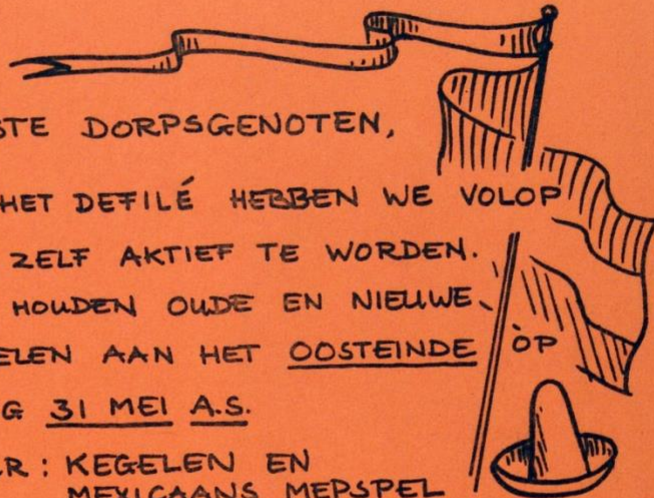 STE DORPSGENOTEN,
HET DEFILÉ HEBBEN WE VOLOP
ZELF AKTIEF TE WORDEN.
HOUDEN OUDE EN NIEUWE
ELEN AAN HET OOSTEINDE OP
G 31 MEI A.S.
R: KEGELEN EN
MEXICAANS MEPSPEL